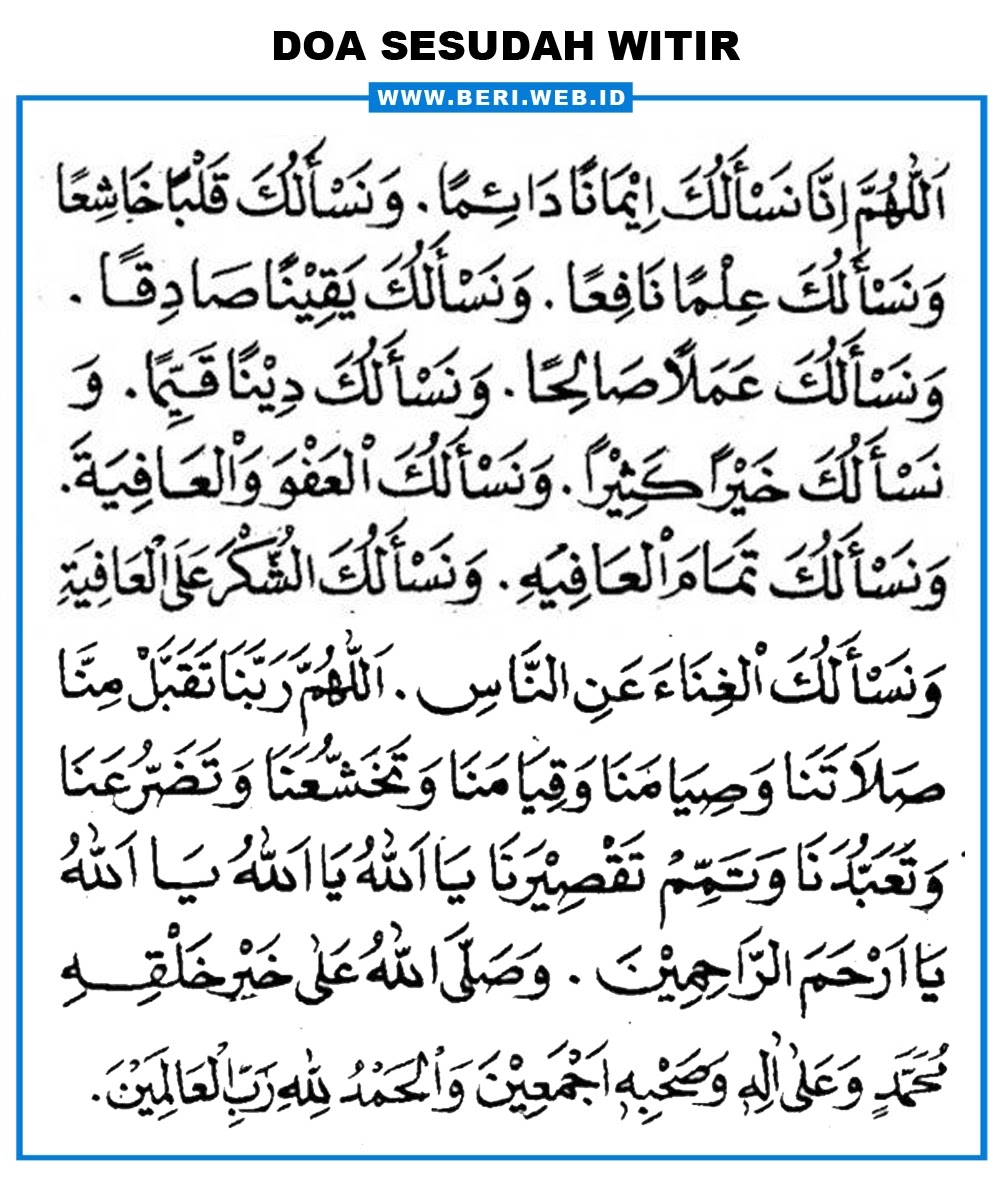 DOA SESUDAH WITIR
WWW.BERI.WEB.ID
اَللّٰهُمَّ اِنَّا نَسْأَلُكَ اِيْمَانًا دَائِمًا. وَنَسْأَلُكَ قَلْبًا خَاشِعًا
وَنَسْأَلُكَ عِلْمًا نَافِعًا. وَنَسْأَلُكَ يَقِيْنًا صَادِقًا.
وَنَسْأَلُكَ عَمَلًا صَالِحًا. وَنَسْأَلُكَ دِيْنًا قَيِّمًا. وَ
نَسْأَلُكَ خَيْرًا كَثِيْرًا. وَنَسْأَلُكَ الْعَفْوَ وَالْعَافِيَةَ.
وَنَسْأَلُكَ تَمَامَ الْعَافِيَهِ. وَنَسْأَلُكَ الشُّكْرَ عَلَى الْعَافِيَةِ
وَنَسْأَلُكَ الْغِنَاءَ عَنِ النَّاسِ. اَللّٰهُمَّ رَبَّنَا تَقَبَّلْ مِنَّا
صَلاَتَنَا وَصِيَامَنَا وَقِيَامَنَا وَتَخَشُّعَنَا وَتَضَرُّعَنَا
وَتَعَبُّدَنَا وَتَمِّمْ تَقْصِيْرَنَا يَا اَللهُ يَا اَللهُ يَا اَللهُ
يَا اَرْحَمَ الرَّاحِمِيْنَ. وَصَلَّى اللهُ عَلٰى خَيْرِ خَلْقِهِ
مُحَمَّدٍ وَعَلٰى اٰلِهِ وَصَحْبِهِ اَجْمَعِيْنَ وَالْحَمْدُ لِلّٰهِ رَبِّ الْعَالَمِيْنَ.